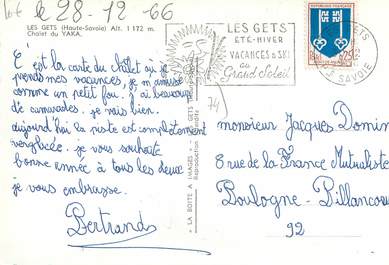 le 28-12-66
LES GETS (Haute-Savoie) Alt. 1 172 m.
Chalet du YAKA.
C'est la carte du châlet où je
prends mes vacances, je m'amuse
comme un petit fou. j'ai beaucoup
de camarades. je vais bien.
aujourd'hui la piste est complètement
verglacée. je vous souhaite
bonne année à tous les deux
je vous embrasse.
Bertrand
LES GETS
ETE-HIVER
VACANCES & SKI
au
Grand Soleil
REPUBLIQUE FRANCAISE
0,25
SAVOIE
74
« LA BOITE A IMAGES » - LES GETS
Reproduction interdite
monsieur Jacques Domin
8 rue de la France Mutualiste
Boulogne-Billancourt
92